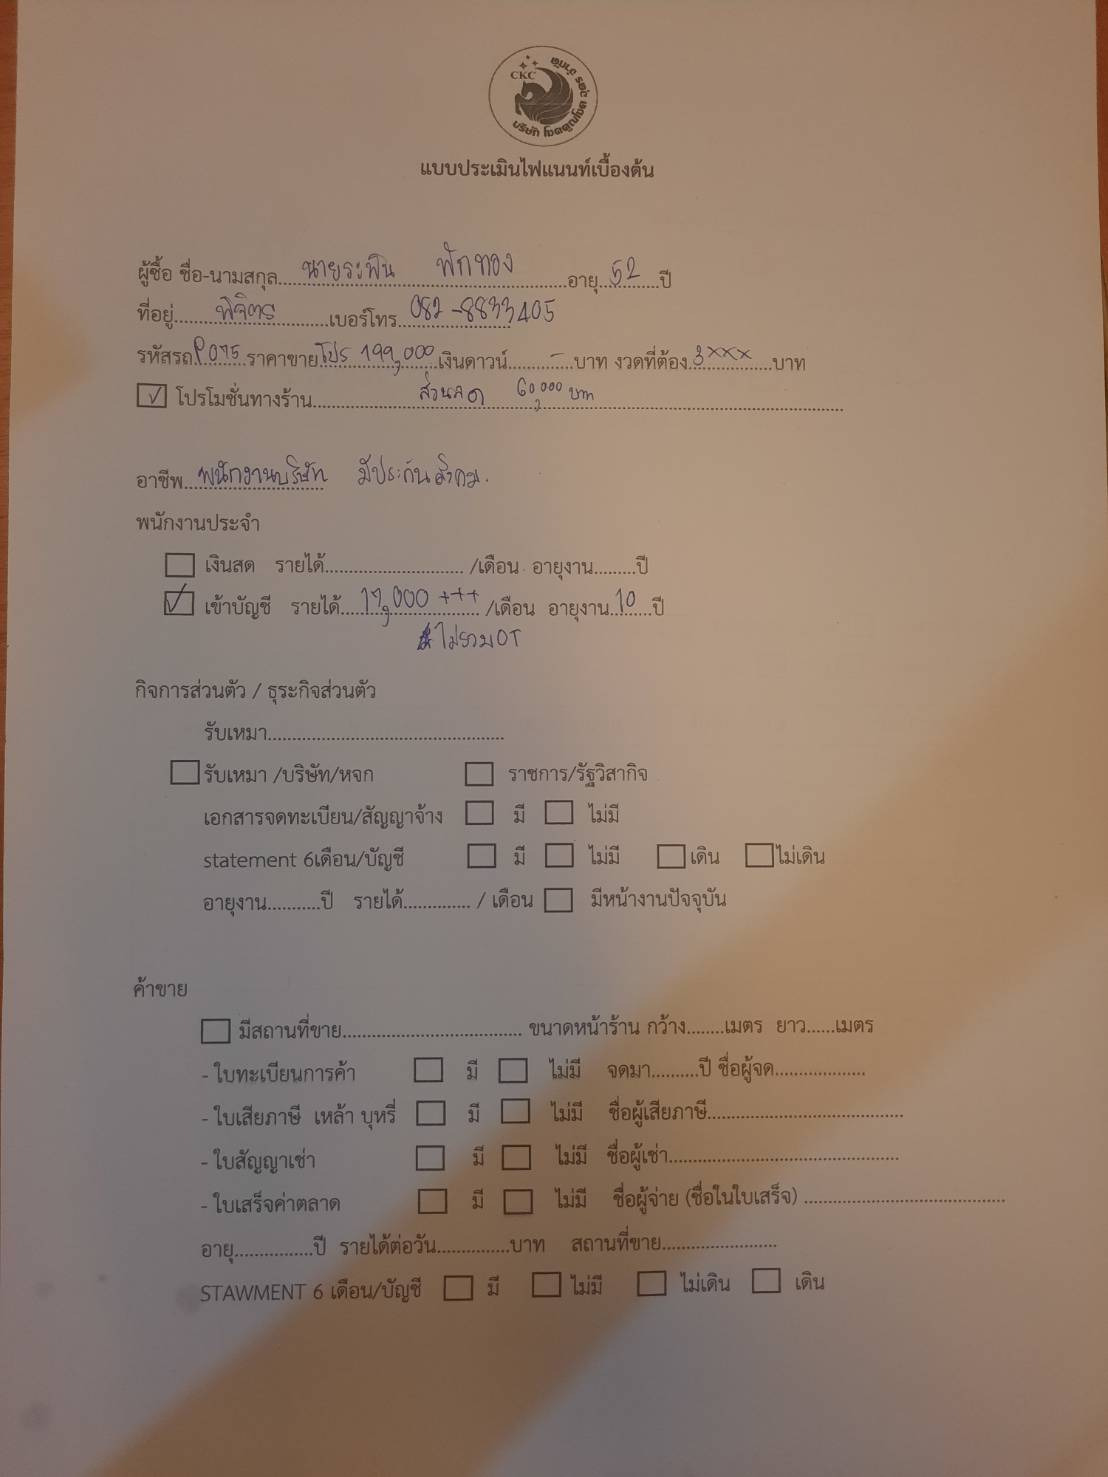 CKC
บริษัท โชคคูณโชค ฉัตร จำกัด
แบบประเมินไฟแนนท์เบื้องต้น
ผู้ซื้อ ชื่อ-นามสกุล....นายระพิน ฟักทอง....อายุ..52...ปี
ที่อยู่....พิจิตร....เบอร์โทร..082-8833405
รหัสรถ P075 ราคาขาย โปร 199,000 เงินดาวน์....-....บาท งวดที่ต้อง.3xxx....บาท
☑ โปรโมชั่นทางร้าน....ส่วนลด 60,000 บาท....
อาชีพ..พนักงานบริษัท มีประกันสังคม.
พนักงานประจำ
☐ เงินสด รายได้............................/เดือน อายุงาน.........ปี
☑ เข้าบัญชี รายได้....17,000 +++..../เดือน อายุงาน..10...ปี
ไม่รวมOT
กิจการส่วนตัว / ธุระกิจส่วนตัว
รับเหมา................................................
☐ รับเหมา /บริษัท/หจก ☐ ราชการ/รัฐวิสากิจ
เอกสารจดทะเบียน/สัญญาจ้าง ☐ มี ☐ ไม่มี
statement 6เดือน/บัญชี ☐ มี ☐ ไม่มี ☐ เดิน ☐ ไม่เดิน
อายุงาน...........ปี รายได้.............. / เดือน ☐ มีหน้างานปัจจุบัน
ค้าขาย
☐ มีสถานที่ขาย.................................... ขนาดหน้าร้าน กว้าง........เมตร ยาว......เมตร
- ใบทะเบียนการค้า ☐ มี ☐ ไม่มี จดมา..........ปี ชื่อผู้จด...................
- ใบเสียภาษี เหล้า บุหรี่ ☐ มี ☐ ไม่มี ชื่อผู้เสียภาษี.......................................
- ใบสัญญาเช่า ☐ มี ☐ ไม่มี ชื่อผู้เช่า..............................................
- ใบเสร็จค่าตลาด ☐ มี ☐ ไม่มี ชื่อผู้จ่าย (ชื่อในใบเสร็จ) ........................................
อายุ................ปี รายได้ต่อวัน...............บาท สถานที่ขาย.......................
STAWMENT 6 เดือน/บัญชี ☐ มี ☐ ไม่มี ☐ ไม่เดิน ☐ เดิน